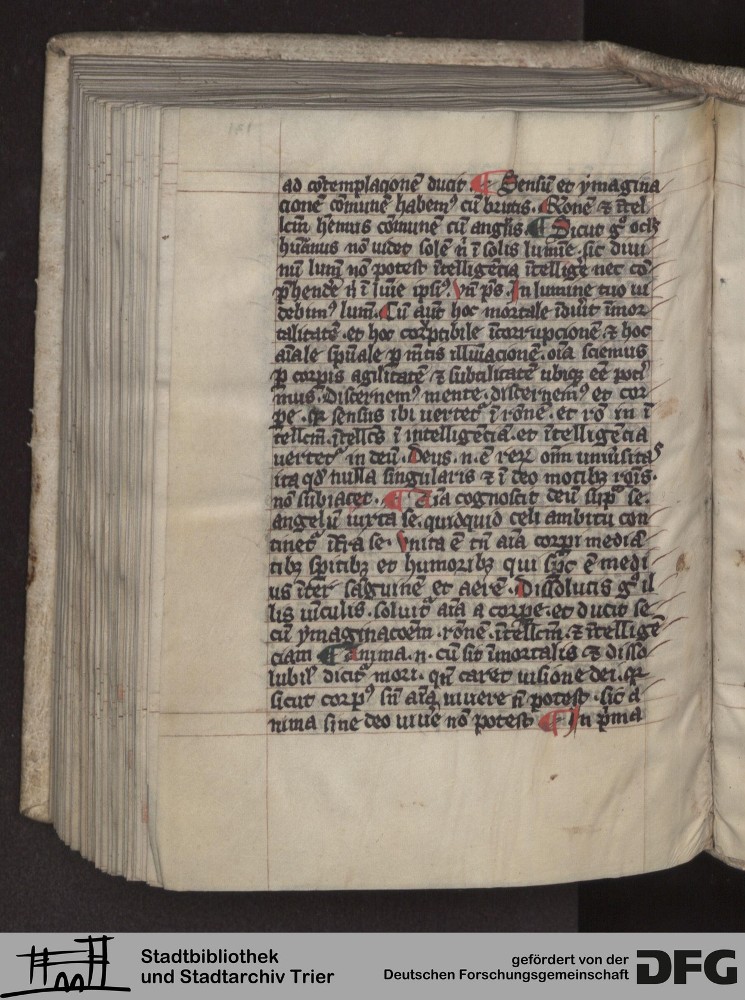 ad cōtemplacionē ducit ¶ Sensū et ymagina
cionē cōmunē habemꝰ cū brutis. Rōnē ⁊ ītel
lcm̄ hēmus cōmunē cū angl̄is ¶ Sicut gͦ oclꝰ
hūānus nō uidet solē nͥ ī solis lumīe. sic diui
nū lum̄ nō potest ītelligēcia ītellige nec cō
p̄hende nͥ ī lūīe ipsiꝰ. Vn̄ p̄s. In lumine tuo ui
debimꝰ lum̄. Cū aut̄ hoc mortale īduit īmor
talitatē. et hoc corꝛptibile īcorrupcionē ⁊ hoc
aīale spūale ꝑ mētis illūīacionē. oīa sciemus
ꝑ corpis agilitatē ⁊ subtilitatē ubiqꝫ eē poti
mus. Discernemꝰ mente. discernemꝰ et cor
pe. qꝛ sensus ibi uertetͬ ī rōnē. et rō in ī
tellcm̄. ītellcs̄ ī intelligēciā. et ītelligēcia
uertetͬ in deū. Deus. n. ē rex om̄ uniūsitatꝭ
ita qd̓ nulla singularis ⁊ ī deo motibꝫ rōīs.
nō subiacet. ¶ Aīa cognoscit deū supͣ se.
angelū iuxta se. quidquid celi ambitu con
tinetͬ īfra se. Vnita ē tn̄ aīa corpi mediā
tibꝫ spitibꝫ et humoribꝫ qui spc̄ ē medi
us īter sāguinē et aerē. Dissolutis gͦ il
lis uīculis. soluitͬ aīa a corpe. et ducit se
cū ymaginacōem. rōnē. ītellcm̄. ⁊ ītelligē
ciam ¶ Anima. n. cū sit īmortalis ⁊ disso
lubilꝭ dicitͬ mori. qn̄ caret uisione dei. qꝛ
sicut corpꝰ sn̄ aīa uiuere nͦ potest. sic a
nima sine deo uiūe nō potest ¶ In pͥma
Stadtbibliothek
und Stadtarchiv Trier
gefördert von der
Deutschen Forschungsgemeinschaft
DFG